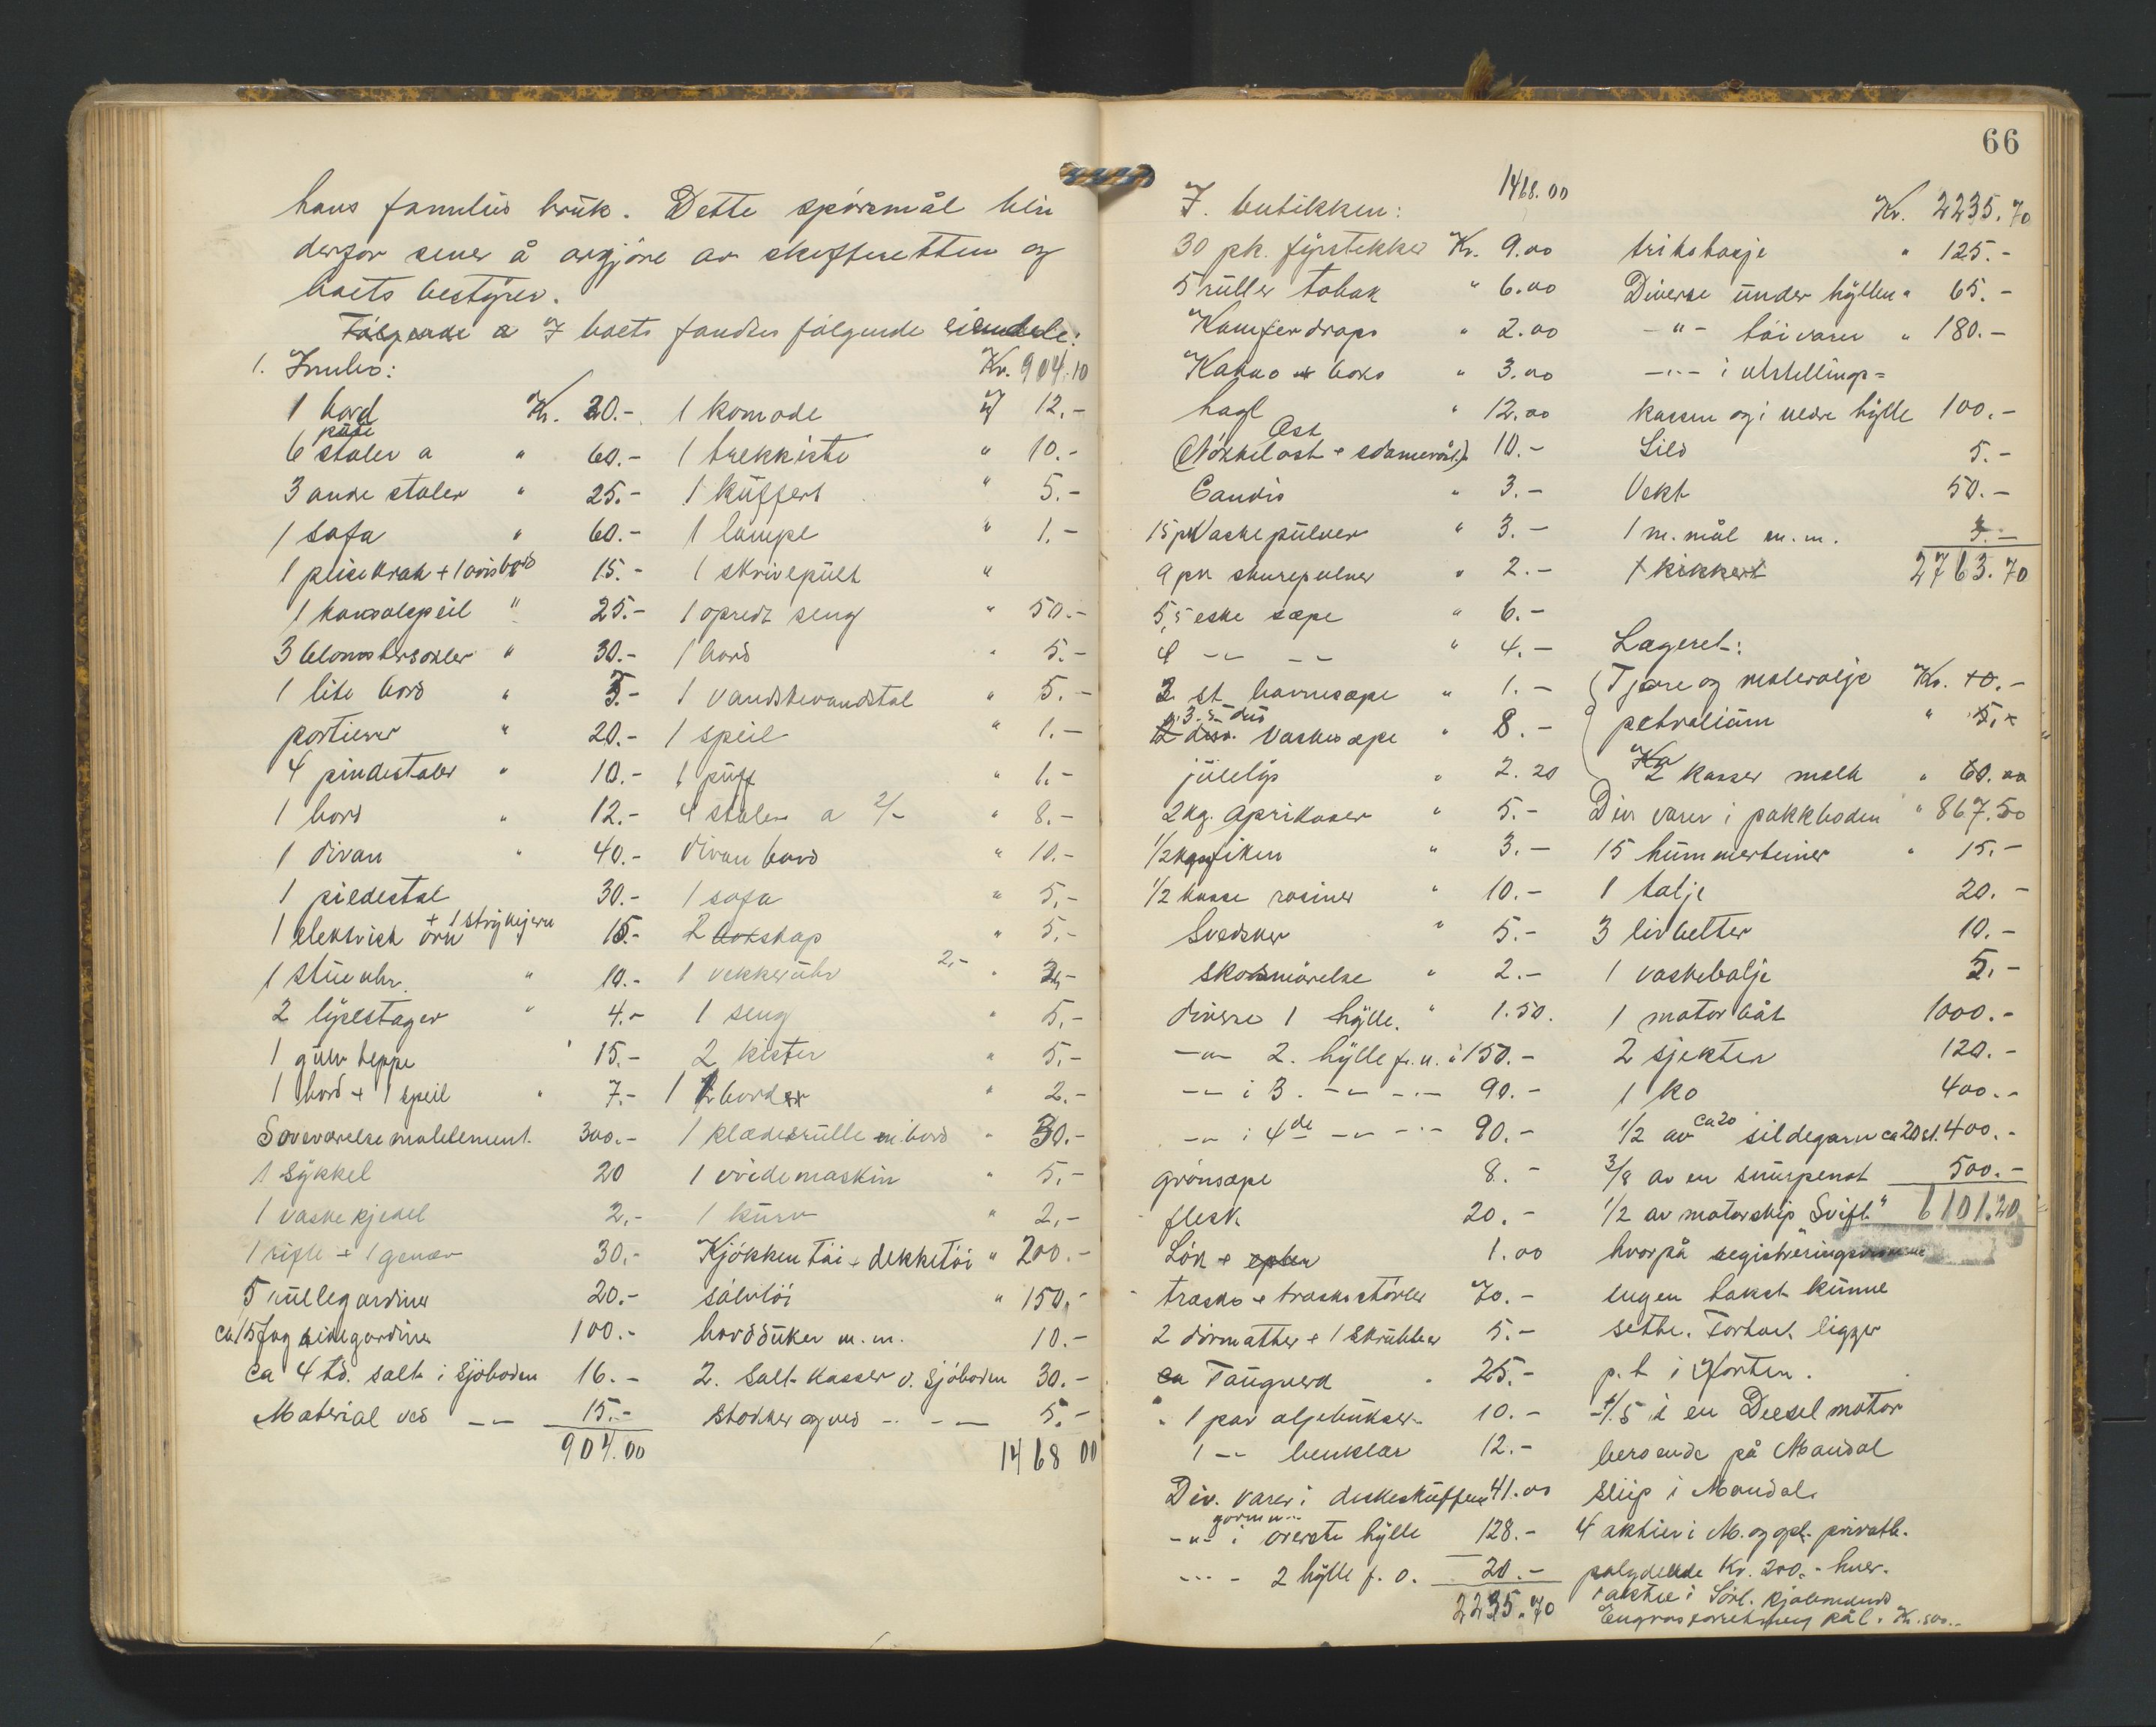 hans families bruk. Dette spörsmål blir
derfor senere å avgjöre av skifteretten og
boets bestyrer.
I boets fandtes fölgende eiendele:
1. Innbo:
Kr. 904.10
1 bord Kr. 20.-
6 stoler a " 60.-
3 andre stoler " 25.-
1 sofa " 60.-
1 pleisekrak + 1 avisbord 15.-
1 konsolspeil " 25.-
3 blomstersokler " 30.-
1 lite bord " 5.-
portierer " 20.-
4 pindestoler " 10.-
1 bord " 12.-
1 divan " 40.-
1 piedestal 30.-
1 elektrisk örn + 1 strykejern " 15.-
1 stueuhr " 10.-
2 lysestager " 4.-
1 gulvteppe " 15.-
1 bord + 1 speil " 7.-
Soveværelsemøblement. 300.-
1 sykkel 20
1 vaskekjedel 2.-
1 rifle + 1 gevær 30.-
5 rullegardiner 20.-
ca 15 fag gardiner 100.-
ca 4 td. salt i sjöboden 16.-
Material ved -"- 15.-
904.00
1 komode " 12.-
1 trekkiste " 10.-
1 kuffert " 5.-
1 lampe " 1.-
1 skrivepult "
1 opredt seng " 50.-
1 bord " 5.-
1 vandskevandstol " 5.-
1 speil " 1.-
1 puff " 1.-
4 stoler a 2/- " 8.-
divan bord " 10.-
1 sofa " 5.-
2 skap " 5.-
1 vekkeruhr 2,- " 3,-
1 seng " 5,-
2 kister " 5,-
1 bord " 2.-
1 klæderulle m. bord " 30.-
1 vridemaskin " 5,-
1 kurv " 2,-
Kjökkentöi + dekketöi " 200.-
sölvtöi " 150.-
bordduker m.m. 10.-
2. salt kasser v. sjöboden 30.-
stokker og ved -"- 5.-
1468 00
66
I. butikken: 1468.00
30 pk. fyrstikker Kr. 9.00
5 ruller tobak " 6.00
Kamferdrops " 2.00
Kakao boks " 3.00
hagl " 12.00
Ost
(Nökkelost + edamerost) 10.-
Candis " 3.-
15 pk Vaskepulver " 3.-
9 pk skurepulver " 2.-
5,5 eske sæpe " 6.-
4 -"- -"- " 4.-
3 st. barnesæpe " 1.-
3.5 dus vaskesæpe " 8.-
julelys " 2.20
2 kg. aprikoser " 5.-
1/2 kg fiken " 3.-
1/2 kasse rosiner " 10.-
Svedsker " 5.-
skosmörelse " 2.-
diverse 1 hylle. " 1.50.
-"- 2. hylle f. n. " 150.-
-"- i 3. -"- -"- 90.-
-"- i 4de -"- -"- 90.-
grönsæpe 8.-
flesk 20.-
Lök + epler 1.00
trasko + traskostövler 70.-
2 dörmatter + 1 skrubber 5.-
Taugverk " 25.-
1 par oljebukser 10.-
1 -"- benklær 12.-
Div. varer i diskeskuffene 41.00
-"- i överste hylle 128.-
-"- 2 hylle f. o. 20.-
2235.70
Kr. 2235.70
trikotasje " 125.-
Diverse under hyllen " 65.-
-"- töivarer " 180.-
-"- i utstillings=
kassen og i nedre hylle 100.-
Sild 5.-
Vekt 50.-
1 m. mål m.m. 3.-
1 kikkert 2763.70
Lageret:
Tjære og malerolje Kr. 10.-
petroleum " 5.-
2 kasser melk " 60.00
Div. varer i pakkboden " 867.50
15 hummerteiner " 15.-
1 talje 20.-
3 livbelter 10.-
1 vaskebalje 5.-
1 motorbåt 1000.-
2 sjekter 120.-
1 ko 400.-
1/2 av ca 20 sildegarn ca 20 st. 400.-
3/8 av en snurpenot 500.-
1/2 av motorskip "Svift" 6101.20
hvorpå
ingen takst kunne
settes. Fartöiet ligger
p. t. i Horten.
1/5 i en Diesel motor
beroende på Mandal
slip i Mandal.
4 aktier i M. og opl. privatb.
palydende Kr. 200.- hver.
1 aktie i Sörl. Kjöbmænds
Engrosforretning pål. Kr. 500.-